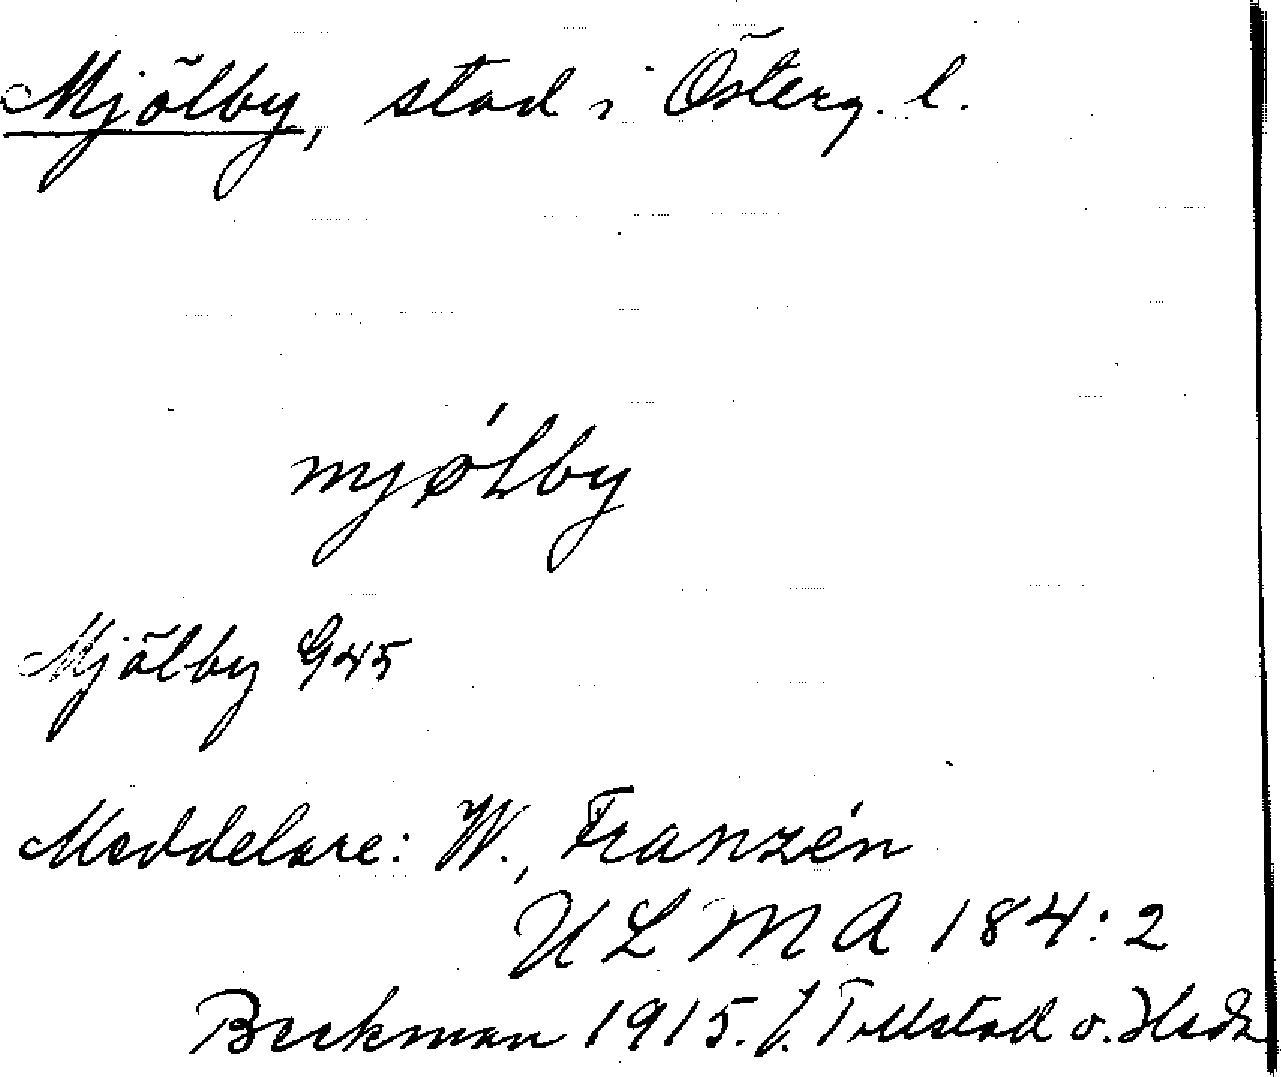 Mjölby, stad i Österg. l.
mjǿlby
Mjölby G45
Meddelare: W. Franzén
ULMA 184:2
Beckman 1915. f. Tollstad o. Heda